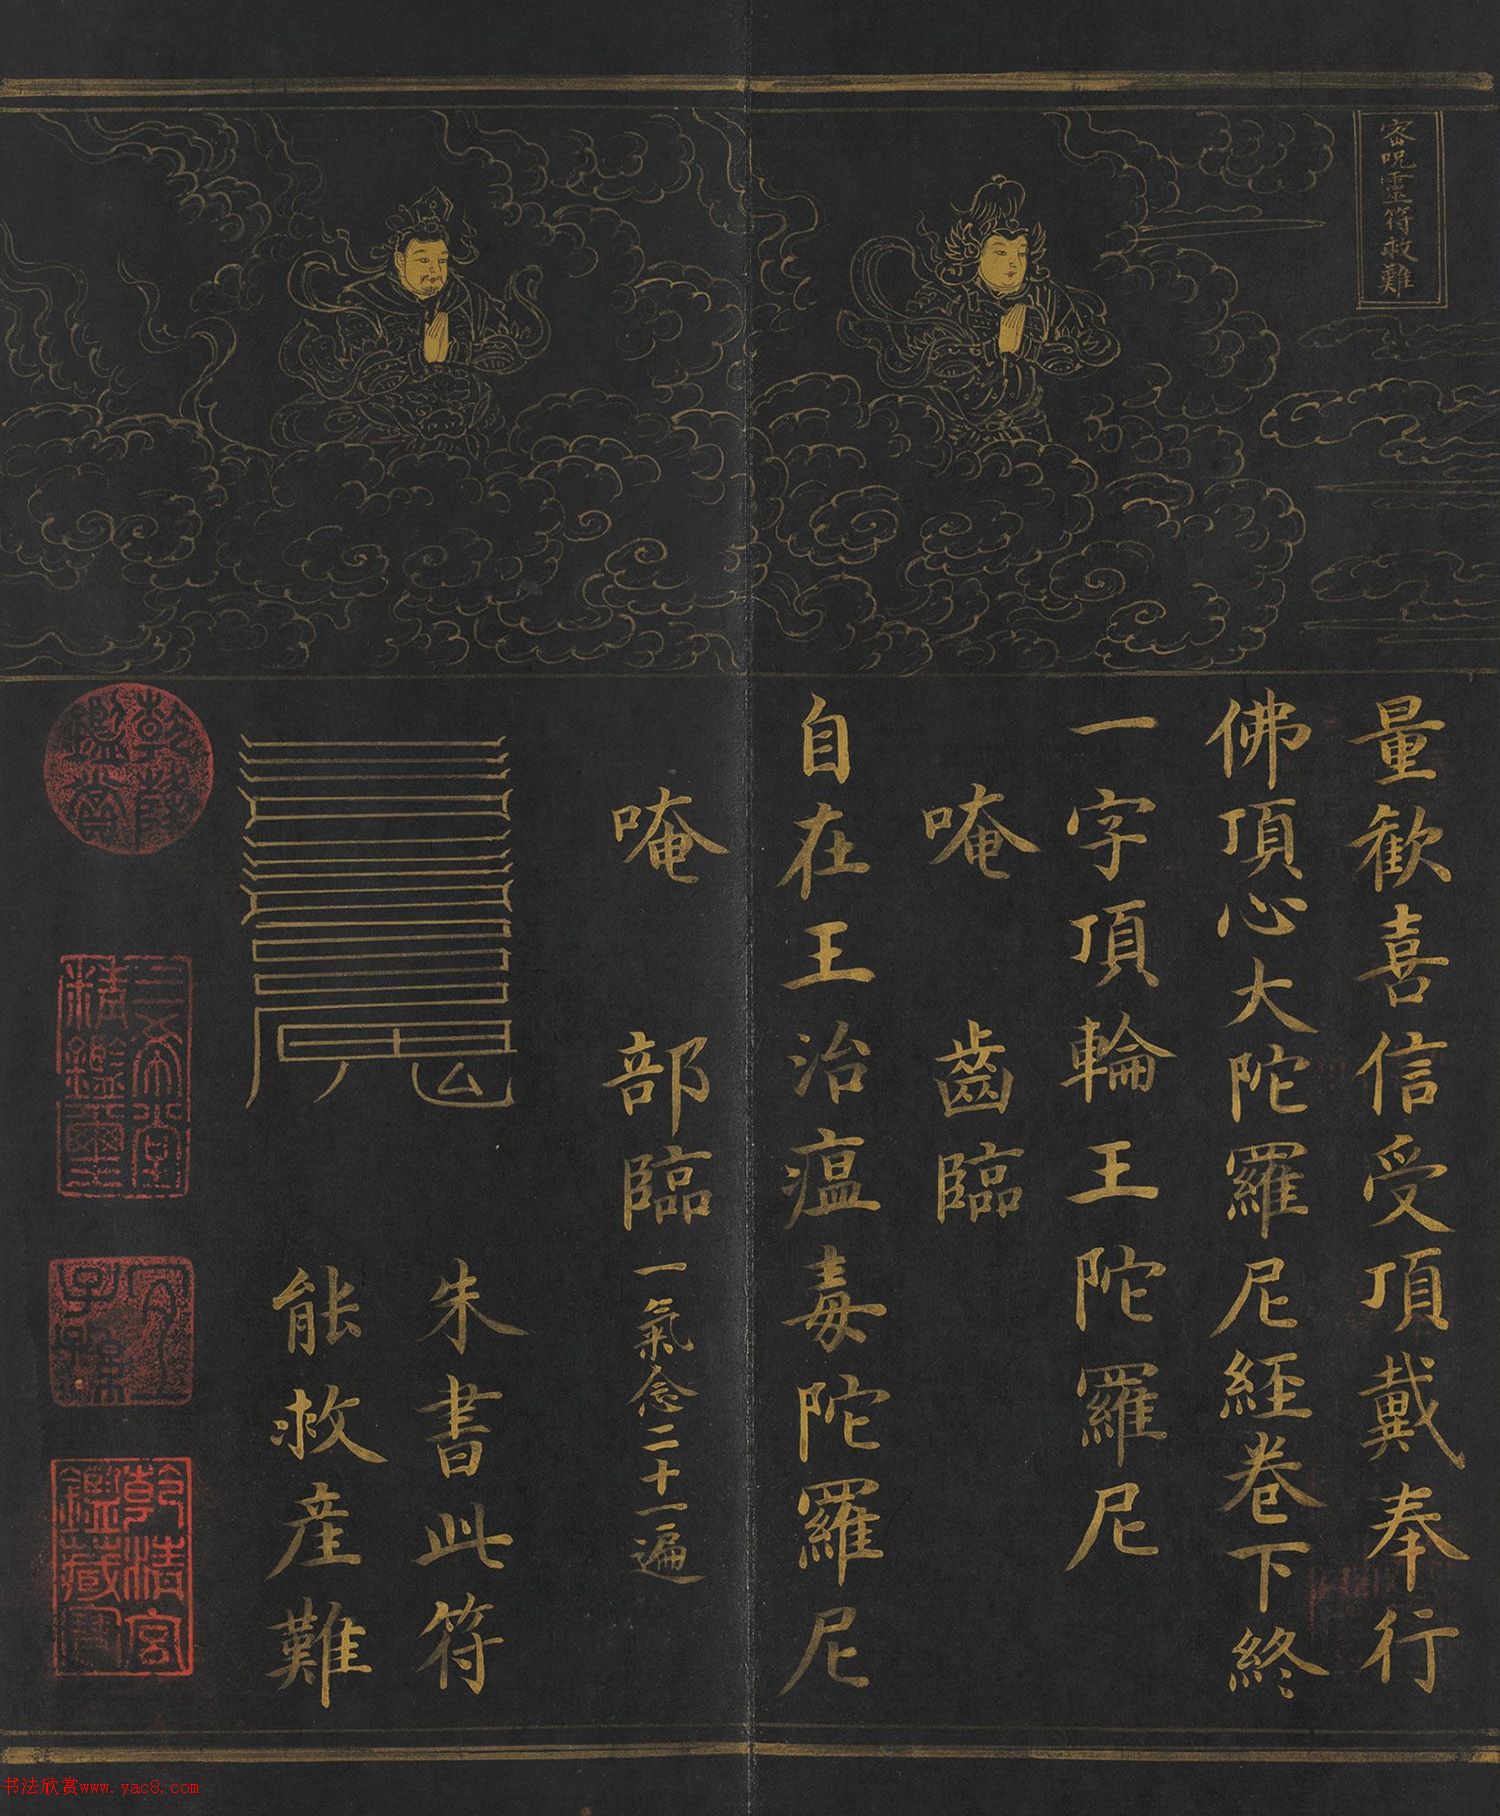 密呪靈符救難
量歡喜信受頂戴奉行
佛頂心大陀羅尼經卷下終
一字頂輪王陀羅尼
唵 齒臨
自在王治瘟毒陀羅尼
唵 部臨 一氣念二十一遍
朱書此符
能救産難
乾隆鑑賞
三希堂精鑑璽
宜子孫
乾清宮鑑藏寶
书法欣赏www.yac8.com